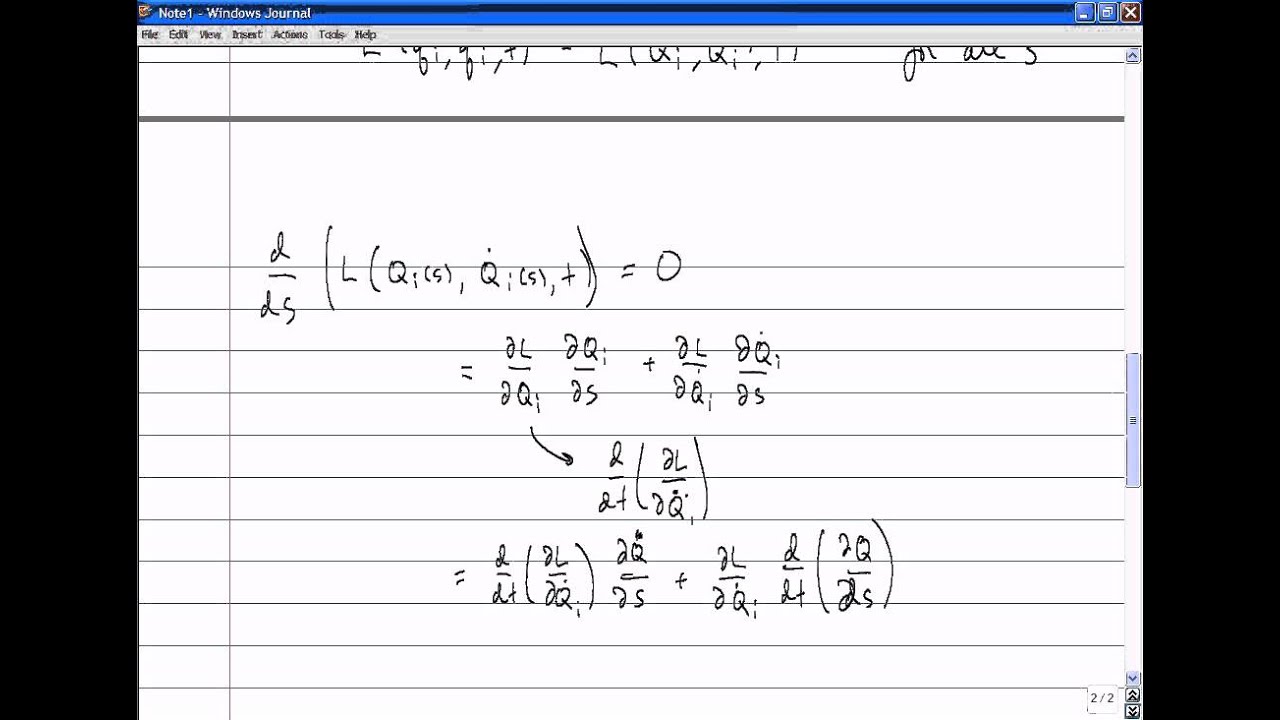 Note1 - Windows Journal
File Edit View Insert Actions Tools Help
L (q̇i, qi, t) = L(Qi, Q̇i, t) for all s
d/ds (L(Qi(s), Q̇i(s), t)) = 0
= ∂L/∂Qi ∂Qi/∂s + ∂L/∂Q̇i ∂Q̇i/∂s
d/dt (∂L/∂Q̇i)
= d/dt (∂L/∂Q̇i) ∂Q/∂s + ∂L/∂Q̇i d/dt (∂Q/∂s)
2 / 2